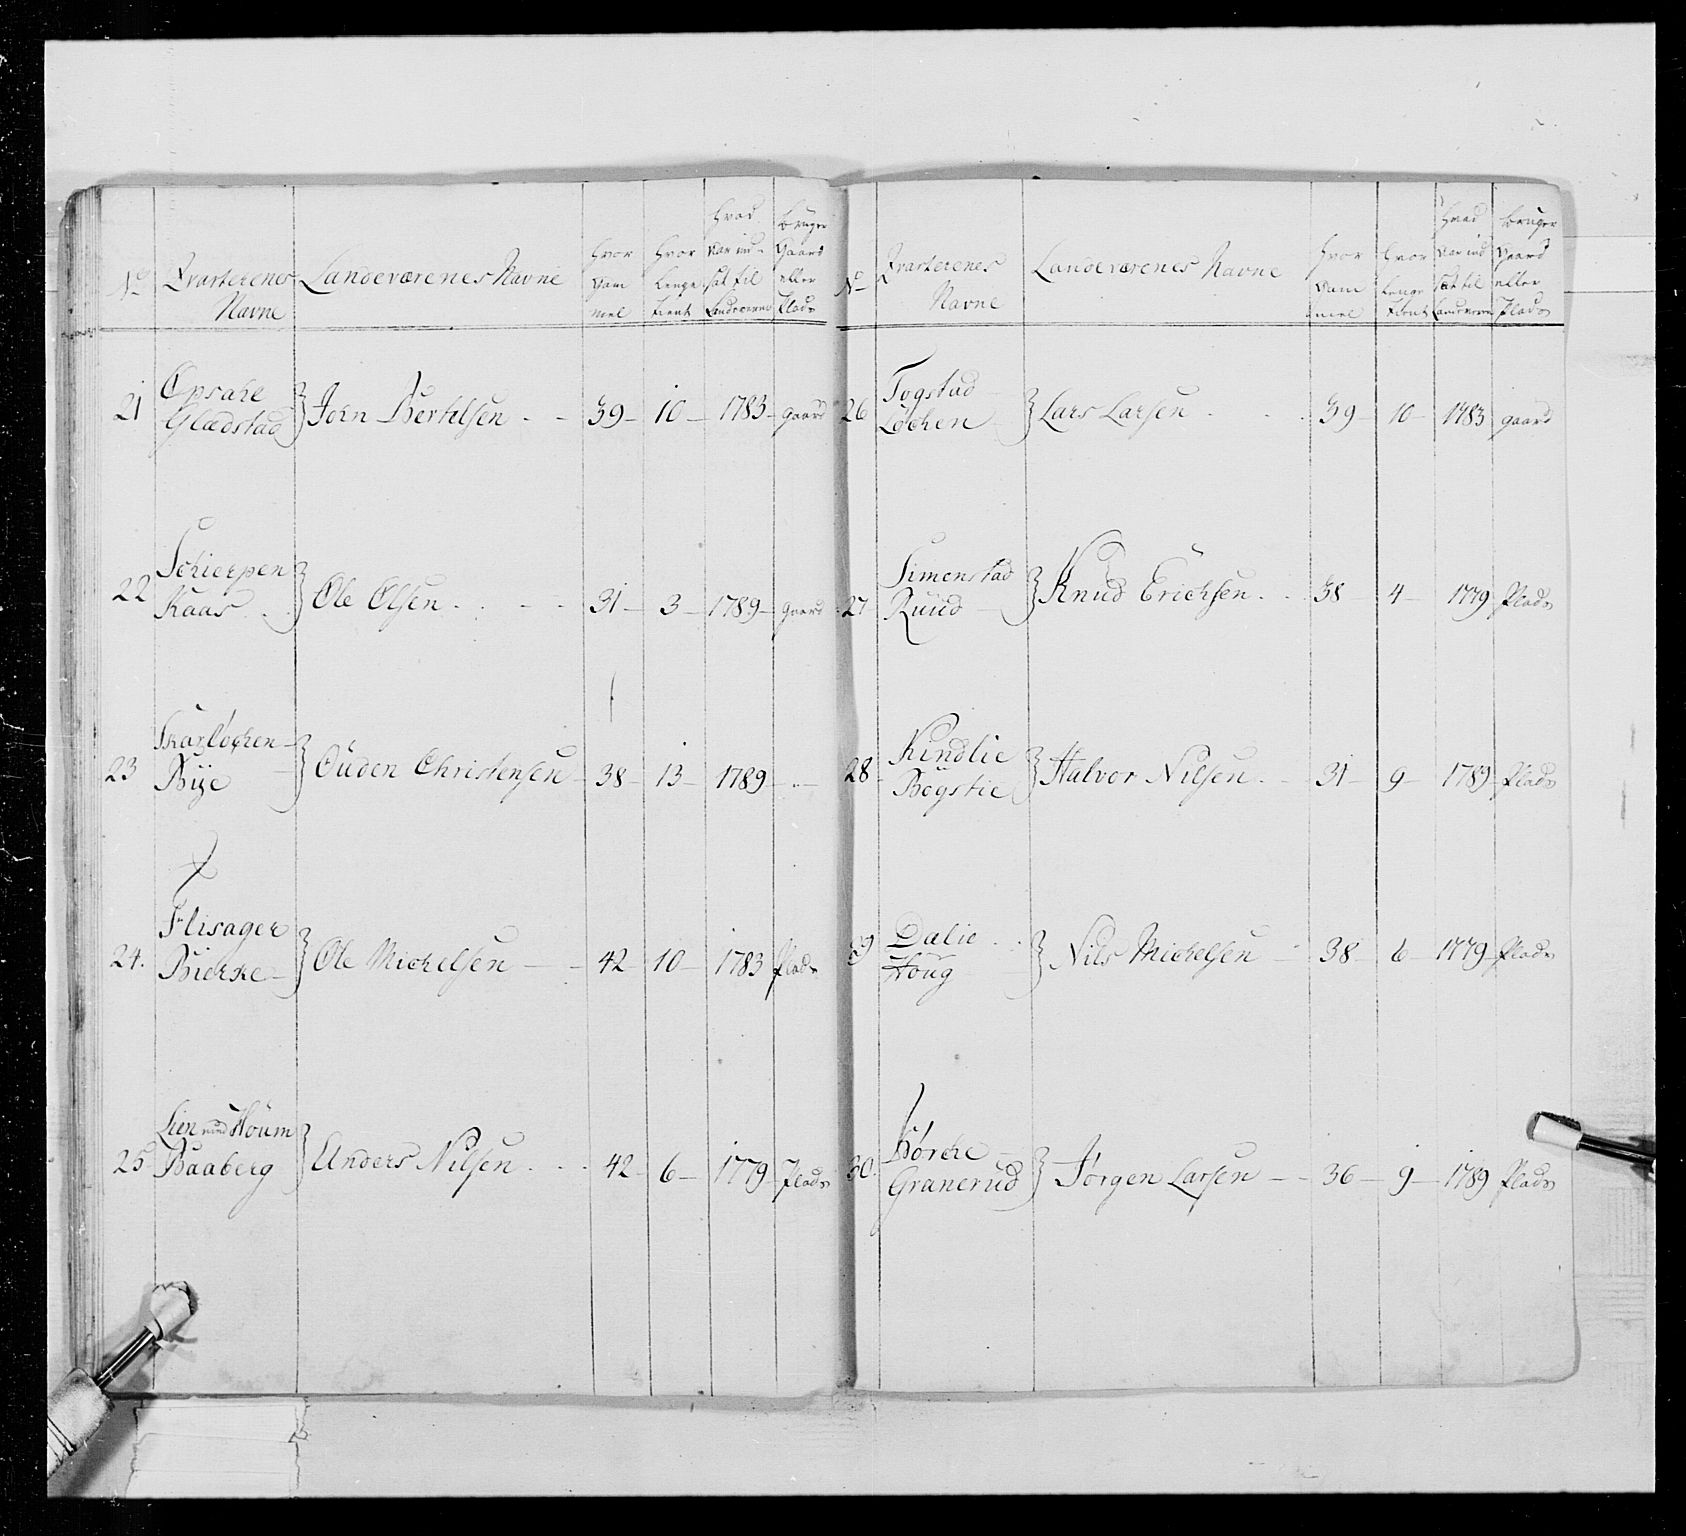 No Qvarterenes Navne Landeværenes Navne hvor Gammel hvor lenge tient hvad Aar indsat til Landeværn bruger Gaard eller Plads
21 Opsahl Glædstad } Jorn Bertelsen - - 39 - 10 - 1783 - gaard
22 Schierpen Kaas } Ole Olsen - - 31 - 3 - 1789 - gaard
23 Skarløchen Bye } Ouden Christensen - 38 - 13 - 1789 -
24. Flisager Bierke } Ole Michelsen - - 42 - 10 - 1783 Plads
25 Lien med Houm Baaberg } Anders Nilsen - - 42 - 6 - 1779 - Plads
No Qvarterenes Navne Landeværenes Navne hvor Gammel hvor lenge tient hvad Aar indsat til Landeværn bruger Gaard eller Plads
26 Togstad Løchen } Lars Larsen - - 39 - 10 - 1783 gaard
27 Simenstad Ruud } Knud Erichsen - - 38 - 4 - 1779 Plads
28 Kindlie Bøgstie } Halvor Nilsen - - 31 - 9 - 1789 - Plads
29 Dalie Houg } Nils Michelsen - 38 - 6 - 1779 - Plads
30. Hørche Granerud } Jørgen Larsen - - 36 - 9 - 1789 Plads